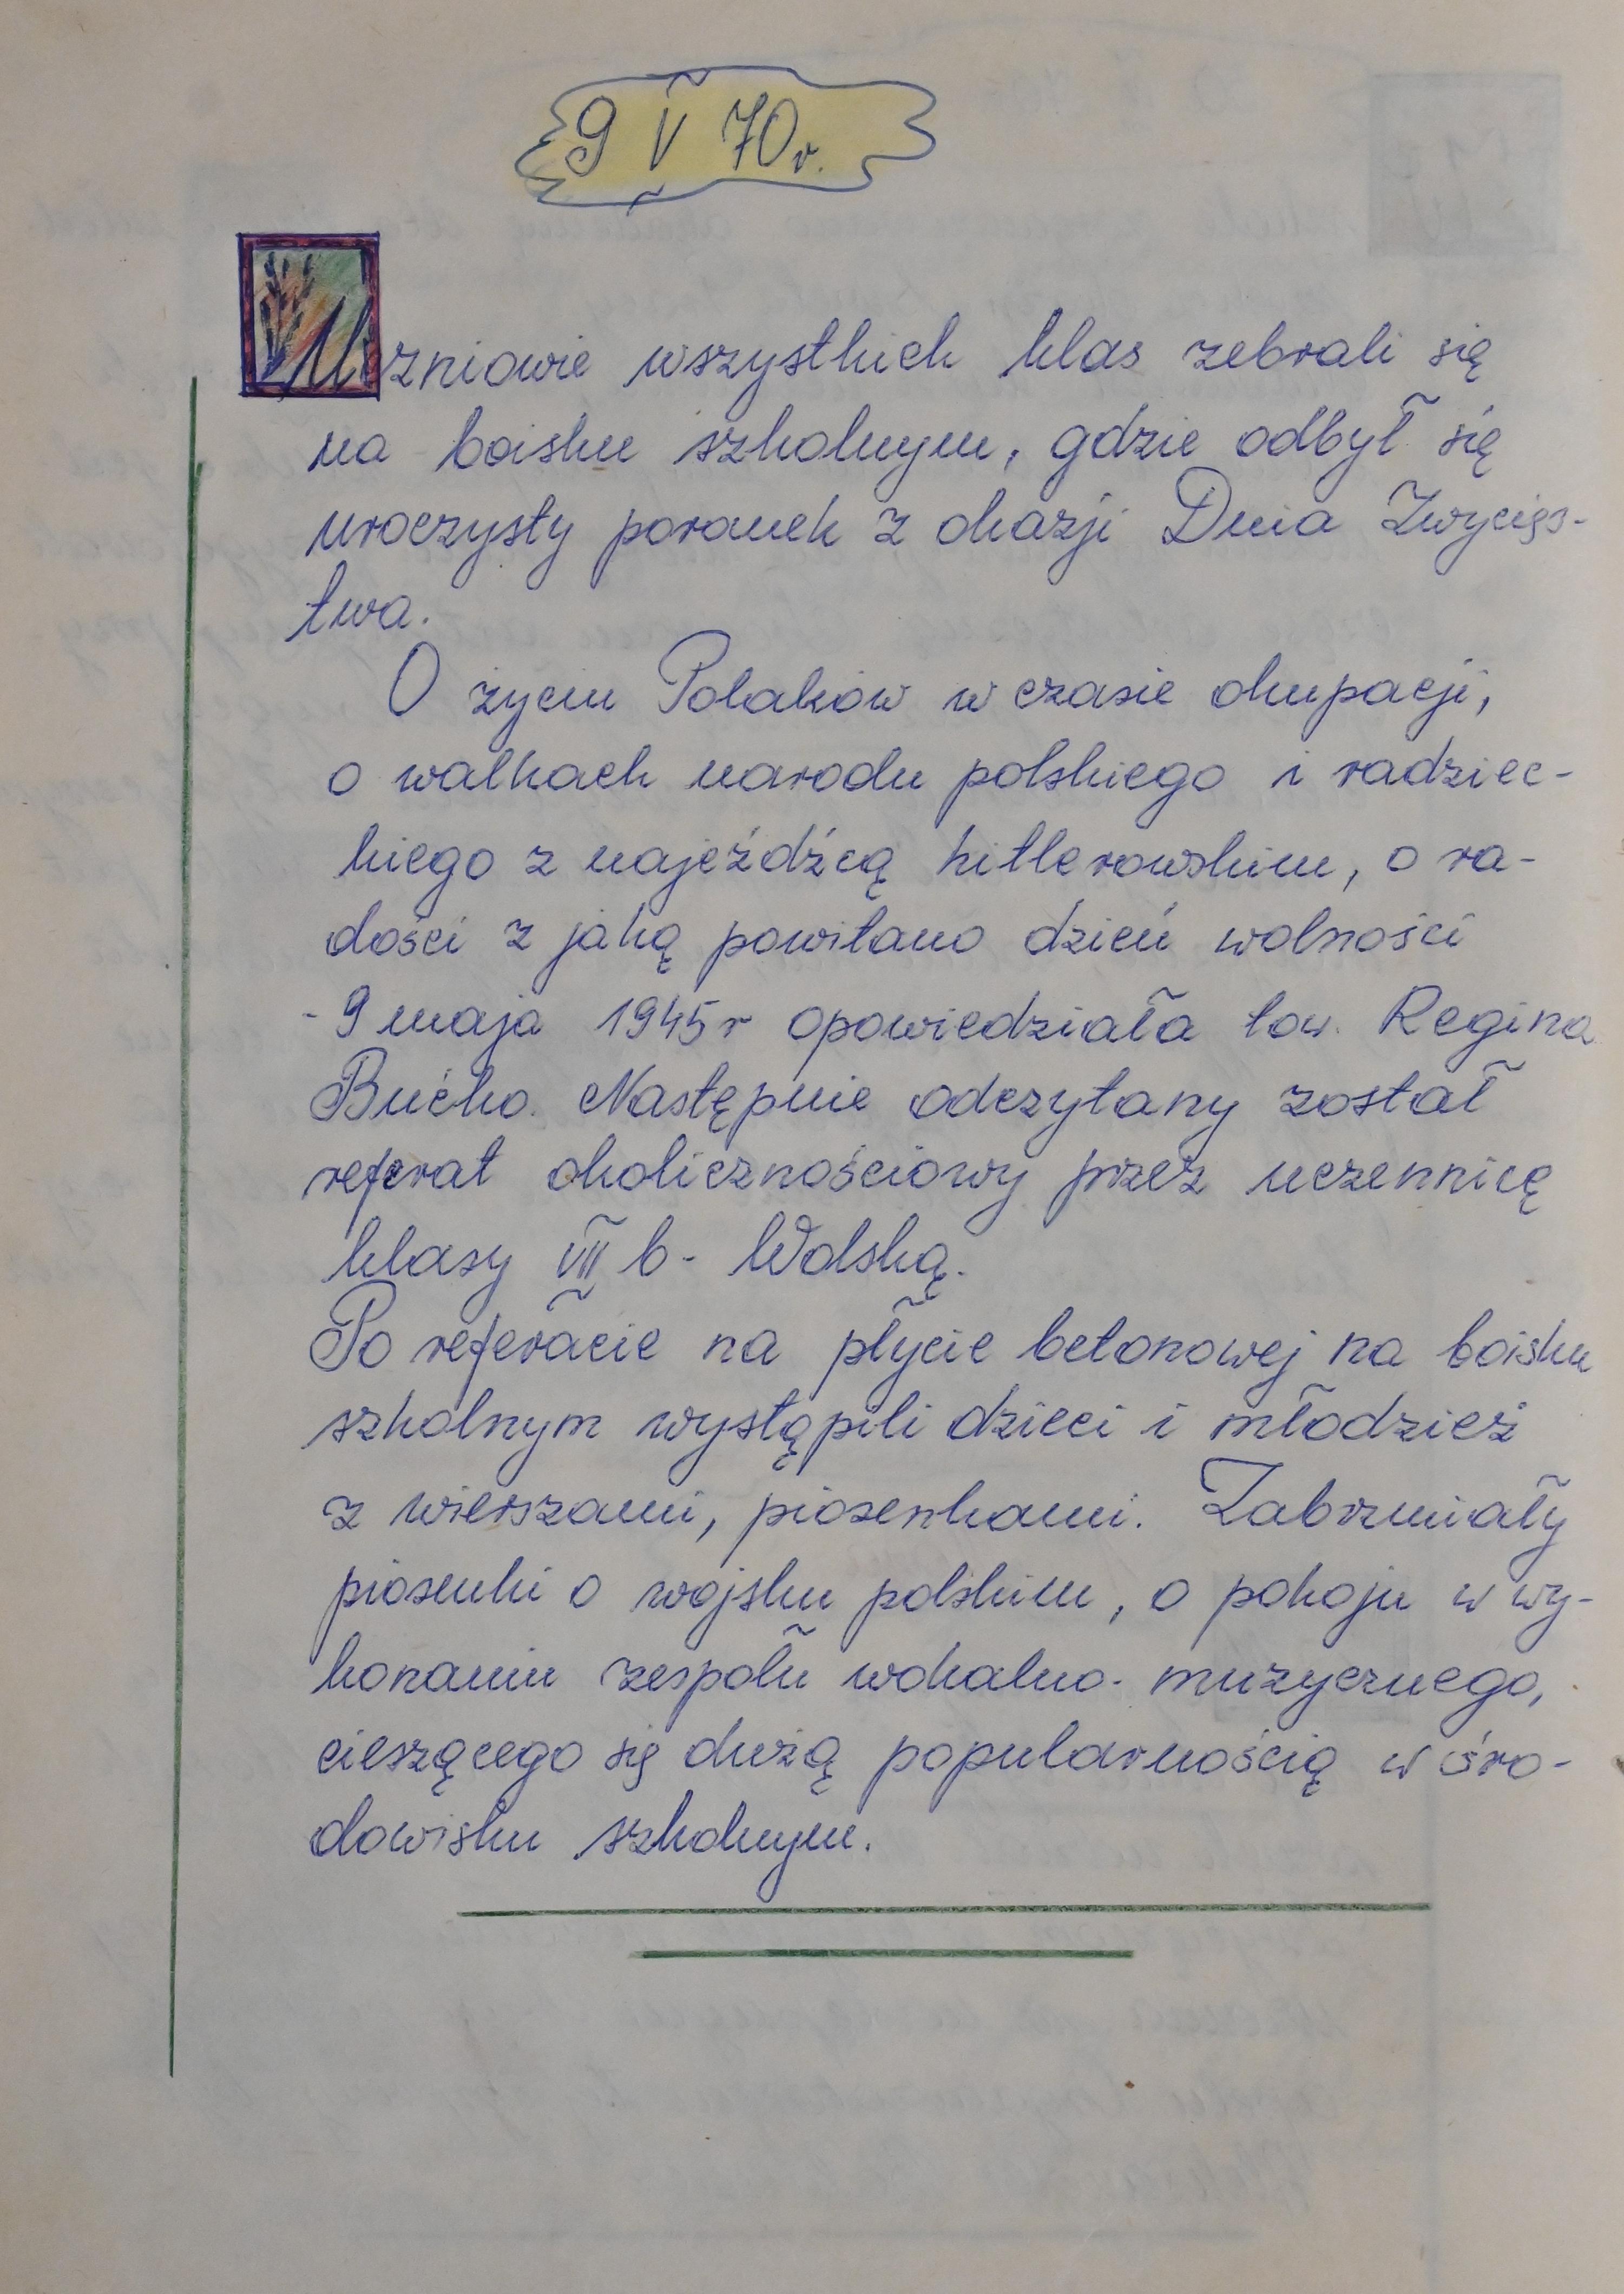 9 V 70r.
Uczniowie wszystkich klas zebrali się
na boisku szkolnym, gdzie odbył się
uroczysty poranek z okazji Dnia Zwycięs-
twa.
O życiu Polaków w czasie okupacji,
o walkach narodu polskiego i radziec-
kiego z najeźdźcą hitlerowskim, o ra-
dości z jaką powitano dzień wolności
- 9 maja 1945 r opowiedziała tow. Regina
Bućko. Następnie odczytany został
referat okolicznościowy przez uczennicę
klasy VII b - Wolską.
Po referacie na płycie betonowej na boisku
szkolnym wystąpili dzieci i młodzież
z wierszami, piosenkami. Zabrzmiały
piosenki o wojsku polskim, o pokoju w wy-
konaniu zespołu wokalno - muzycznego,
cieszącego się dużą popularnością w śro-
dowisku szkolnym.